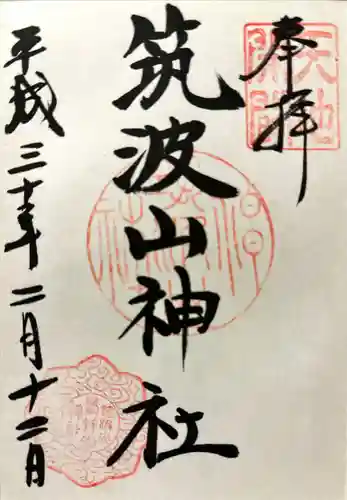 奉拝
天地開闢
筑波山神社
平成三十年二月十二日